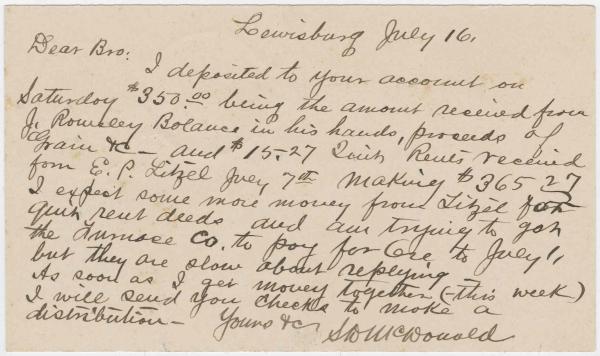 Lewisburg July 16.
Dear Bro:
I deposited to your account on
Saturday $350.00 being the amount received from
J. Rowley Balance in his hands, proceeds of
Grain &c — and $15.27 Quit Rents received
from E. P. Litzel July 7th making $365 27
I expect some more money from Litzel for
quit rent deeds and am trying to get
the Furnace Co. to pay for Ore to July 1,
but they are slow about replying
As soon as I get money together (this week)
I will send you checks to make a
distribution — Yours &c
S D McDonald